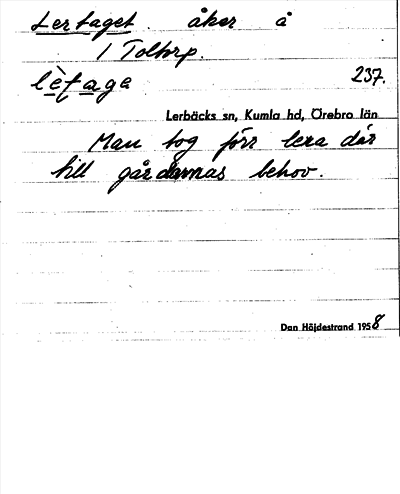 Lertaget. åker å
1 Toltorp.
lè̱ṯa̱ga
237.
Lerbäcks sn, Kumla hd, Örebro län
Man tog förr lera där
till gårdarnas behov.
Dan Höjdestrand 1958